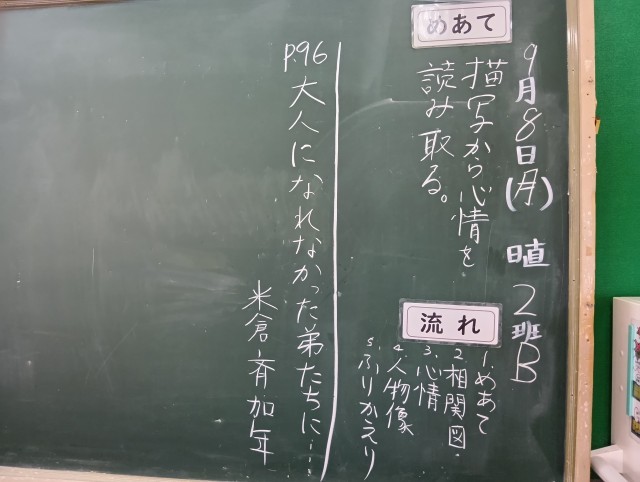 9月8日(月) 日直 2班B
めあて
描写から心情を
読み取る。
流れ
1.めあて
2.相関図
3.心情
4.人物像
5.ふりかえり
P.96 大人になれなかった弟たちに……
米倉斉加年